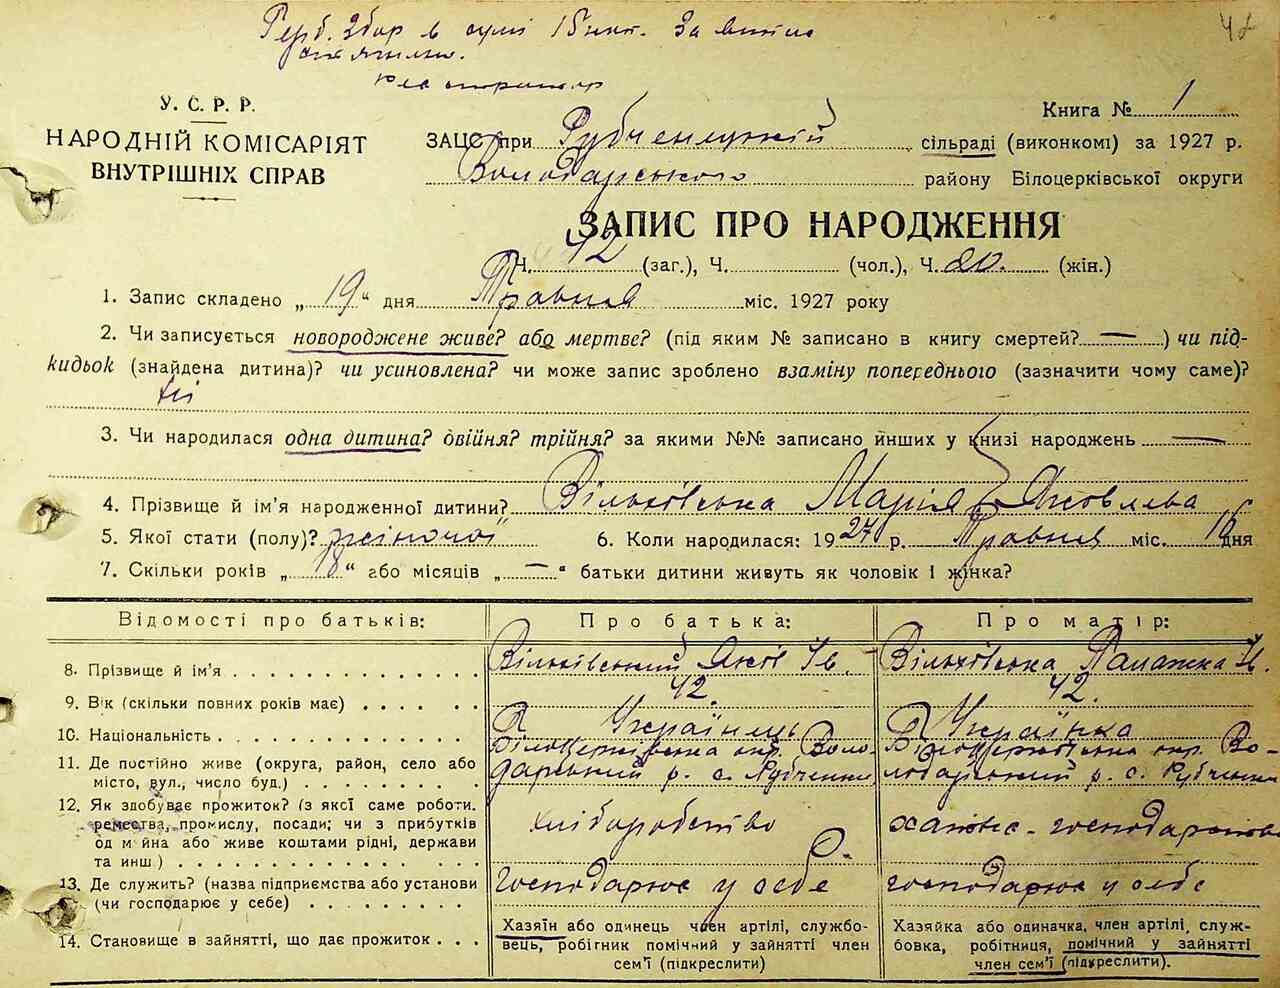 Герб. Збор в сумі 15 коп. За витис
48
У. С. Р. Р.
НАРОДНІЙ КОМІСАРІЯТ
ВНУТРІШНІХ СПРАВ
Книга № 1
ЗАЦС при Рубченецькій сільраді (виконкомі) за 1927 р.
Володарського району Білоцерківської округи
ЗАПИС ПРО НАРОДЖЕННЯ
Ч. 42 (заг.), Ч. (чол.), Ч. 20. (жін.)
1. Запис складено „19“ дня Травня міс. 1927 року
2. Чи записується новороджене живе? або мертве? (під яким № записано в книгу смертей? — ) чи під-
кидьок (знайдена дитина)? чи усиновлена? чи може запис зроблено взаміну попереднього (зазначити чому саме)?
Ні
3. Чи народилася одна дитина? двійня? трійня? за якими №№ записано йнших у книзі народжень —
4. Прізвище й ім'я народженної дитини? Вільхівська Марія Яковлева
5. Якої стати (полу)? жіночої 6. Коли народилася: 1927 р. Травня міс. 16 дня
7. Скільки років „18“ або місяців „—“ батьки дитини живуть як чоловік і жінка?
Відомості про батьків: Про батька: Про матір:
8. Прізвище й ім'я Вільхівський Яків Ів. Вільхівська Палажка Ів.
9. Вік (скільки повних років має) 42. 42.
10. Національність Українець Українка
11. Де постійно живе (округа, район, село або
місто, вул., число буд.)
Білоцерківська окр. Воло-
дарський р. с. Рубченки
Білоцерківська окр. Во-
лодарський р. с. Рубченки
12. Як здобуває прожиток? (з якої саме роботи.
ремества, промислу, посади; чи з прибутків
од майна або живе коштами рідні, держави
та инш.)
хліборобство
хатнє-господарство
13. Де служить? (назва підприємства або установи
(чи господарює у себе)
господарює у себе
господарює у себе
14. Становище в зайнятті, що дає прожиток
Хазяїн або одинець член артілі, службо-
вець, робігник помічний у зайнятті член
сем'ї (підкреслити)
Хазяйка або одиначка, член артілі, служ-
бовка, робітниця, помічний у зайнятті
член сем'ї (підкреслити).